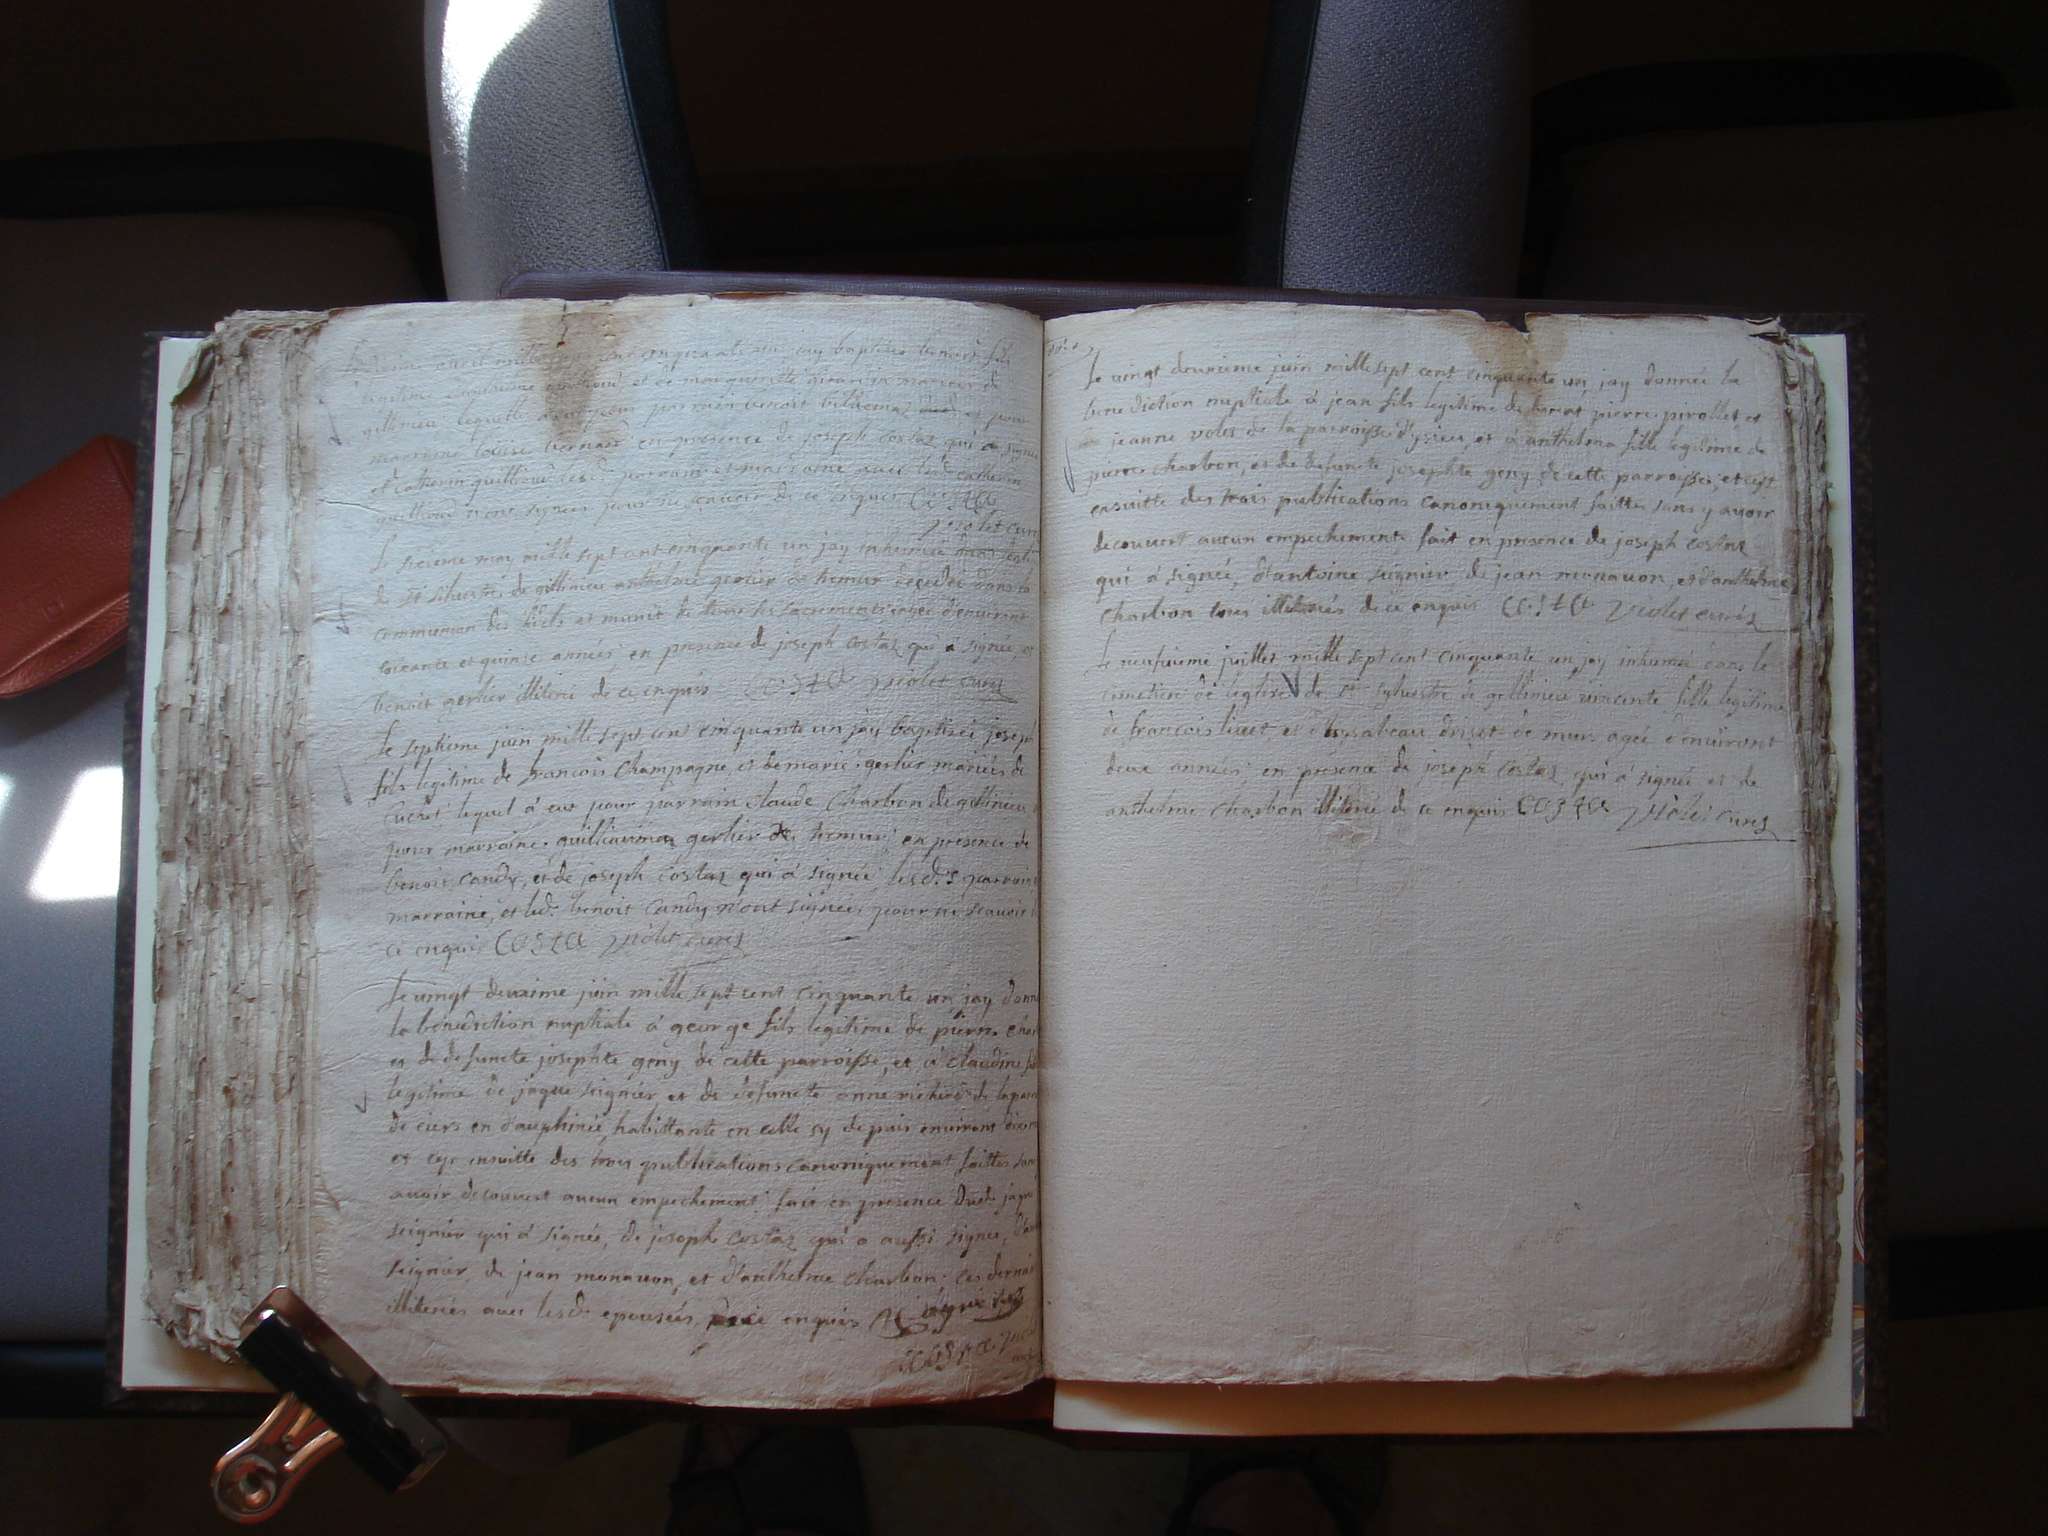 mille sept cent cinquante un jay baptisée benoit fils
legitime et de marguerite mariés de
gillinieu lequel a eu pour parrain benoit et pour
marraine louise bernard en presence de joseph costaz qui a signé
et catherin guilliaud lesd. parrain et marraine avec led. catherin
guilliaud n'ont signées pour ne sçavoir de ce enquis Costa
violet curé
Le may mille sept cent cinquante un jay inhumée
de St. silvestre de gillinieu anthelme gerlier de hemur decedée dans la
communion des fidels et munit de tous ses sacrements agée d'environt
soixante et quinze années en presence de joseph costaz qui a signée, et
benoit gerlier illiteré de ce enquis Costa violet curez
Le septieme juin mille sept cent cinquante un jay baptisée joseph
fils legitime de francois Champagne, et de marie gerlier mariés de
Cuchet lequel à eut pour parrain claude Charbon de gillinieu
pour marraine guilliauma gerlier de hemur; en presence de
benoit candy, et de joseph costaz qui à signée, lesd.s parrain
marraine, et led. benoit candy n'ont signées pour ne scavoir
ce enquis Costa violet curez
Le vingt deuxieme juin mille sept cent cinquante un jay donn
la benediction nuptiale à george fils legitime de pierre Char
et de defuncte josephte geny de cette parroisse, et à claudine
legitime de jaque seignier et de defuncte anne de la parr
de ciers en dauphinée, habittante en celle sy depuis environt
et ce ensuitte des trois publications canoniquement faittes sans
avoir decouvert aucun empechement; fait en presence dud. jaque
seignier qui à signée, de joseph costaz qui a aussi signée, d'an
seignier, de jean monavon, et d'anthelme charbon; ces dernier
illiterés avec lesd. epousées, enquis
Costa
Le vingt deuxieme juin mille sept cent cinquante un, jay donnée la
benediction nuptiale à jean fils legitime de pierre pirollet et
jeanne volet de la parroisse d'ysieu, et à anthelma fille legitime de
pierre charbon, et de defuncte josephte geny de cette parroisse; et cest
ensuitte des trois publications canoniquement faittes sans y avoir
decouvert aucun empechement fait en presence de joseph costaz
qui à signée, d'antoine seignier de jean monavon, et d'anthelme
charbon tous illiterés de ce enquis Costa violet curéz
Le neufvieme juillet mille sept cent cinquante un jay inhumée dans le
cimetiere de l'eglise de St. sylvestre de gellinieu vincente fille legitime
de francois livet, et d'hysabeau de murs agée d'environt
deux années: en presence de joseph costaz qui à signée et de
anthelme charbon illiteré de ce enquis Costa violet curez